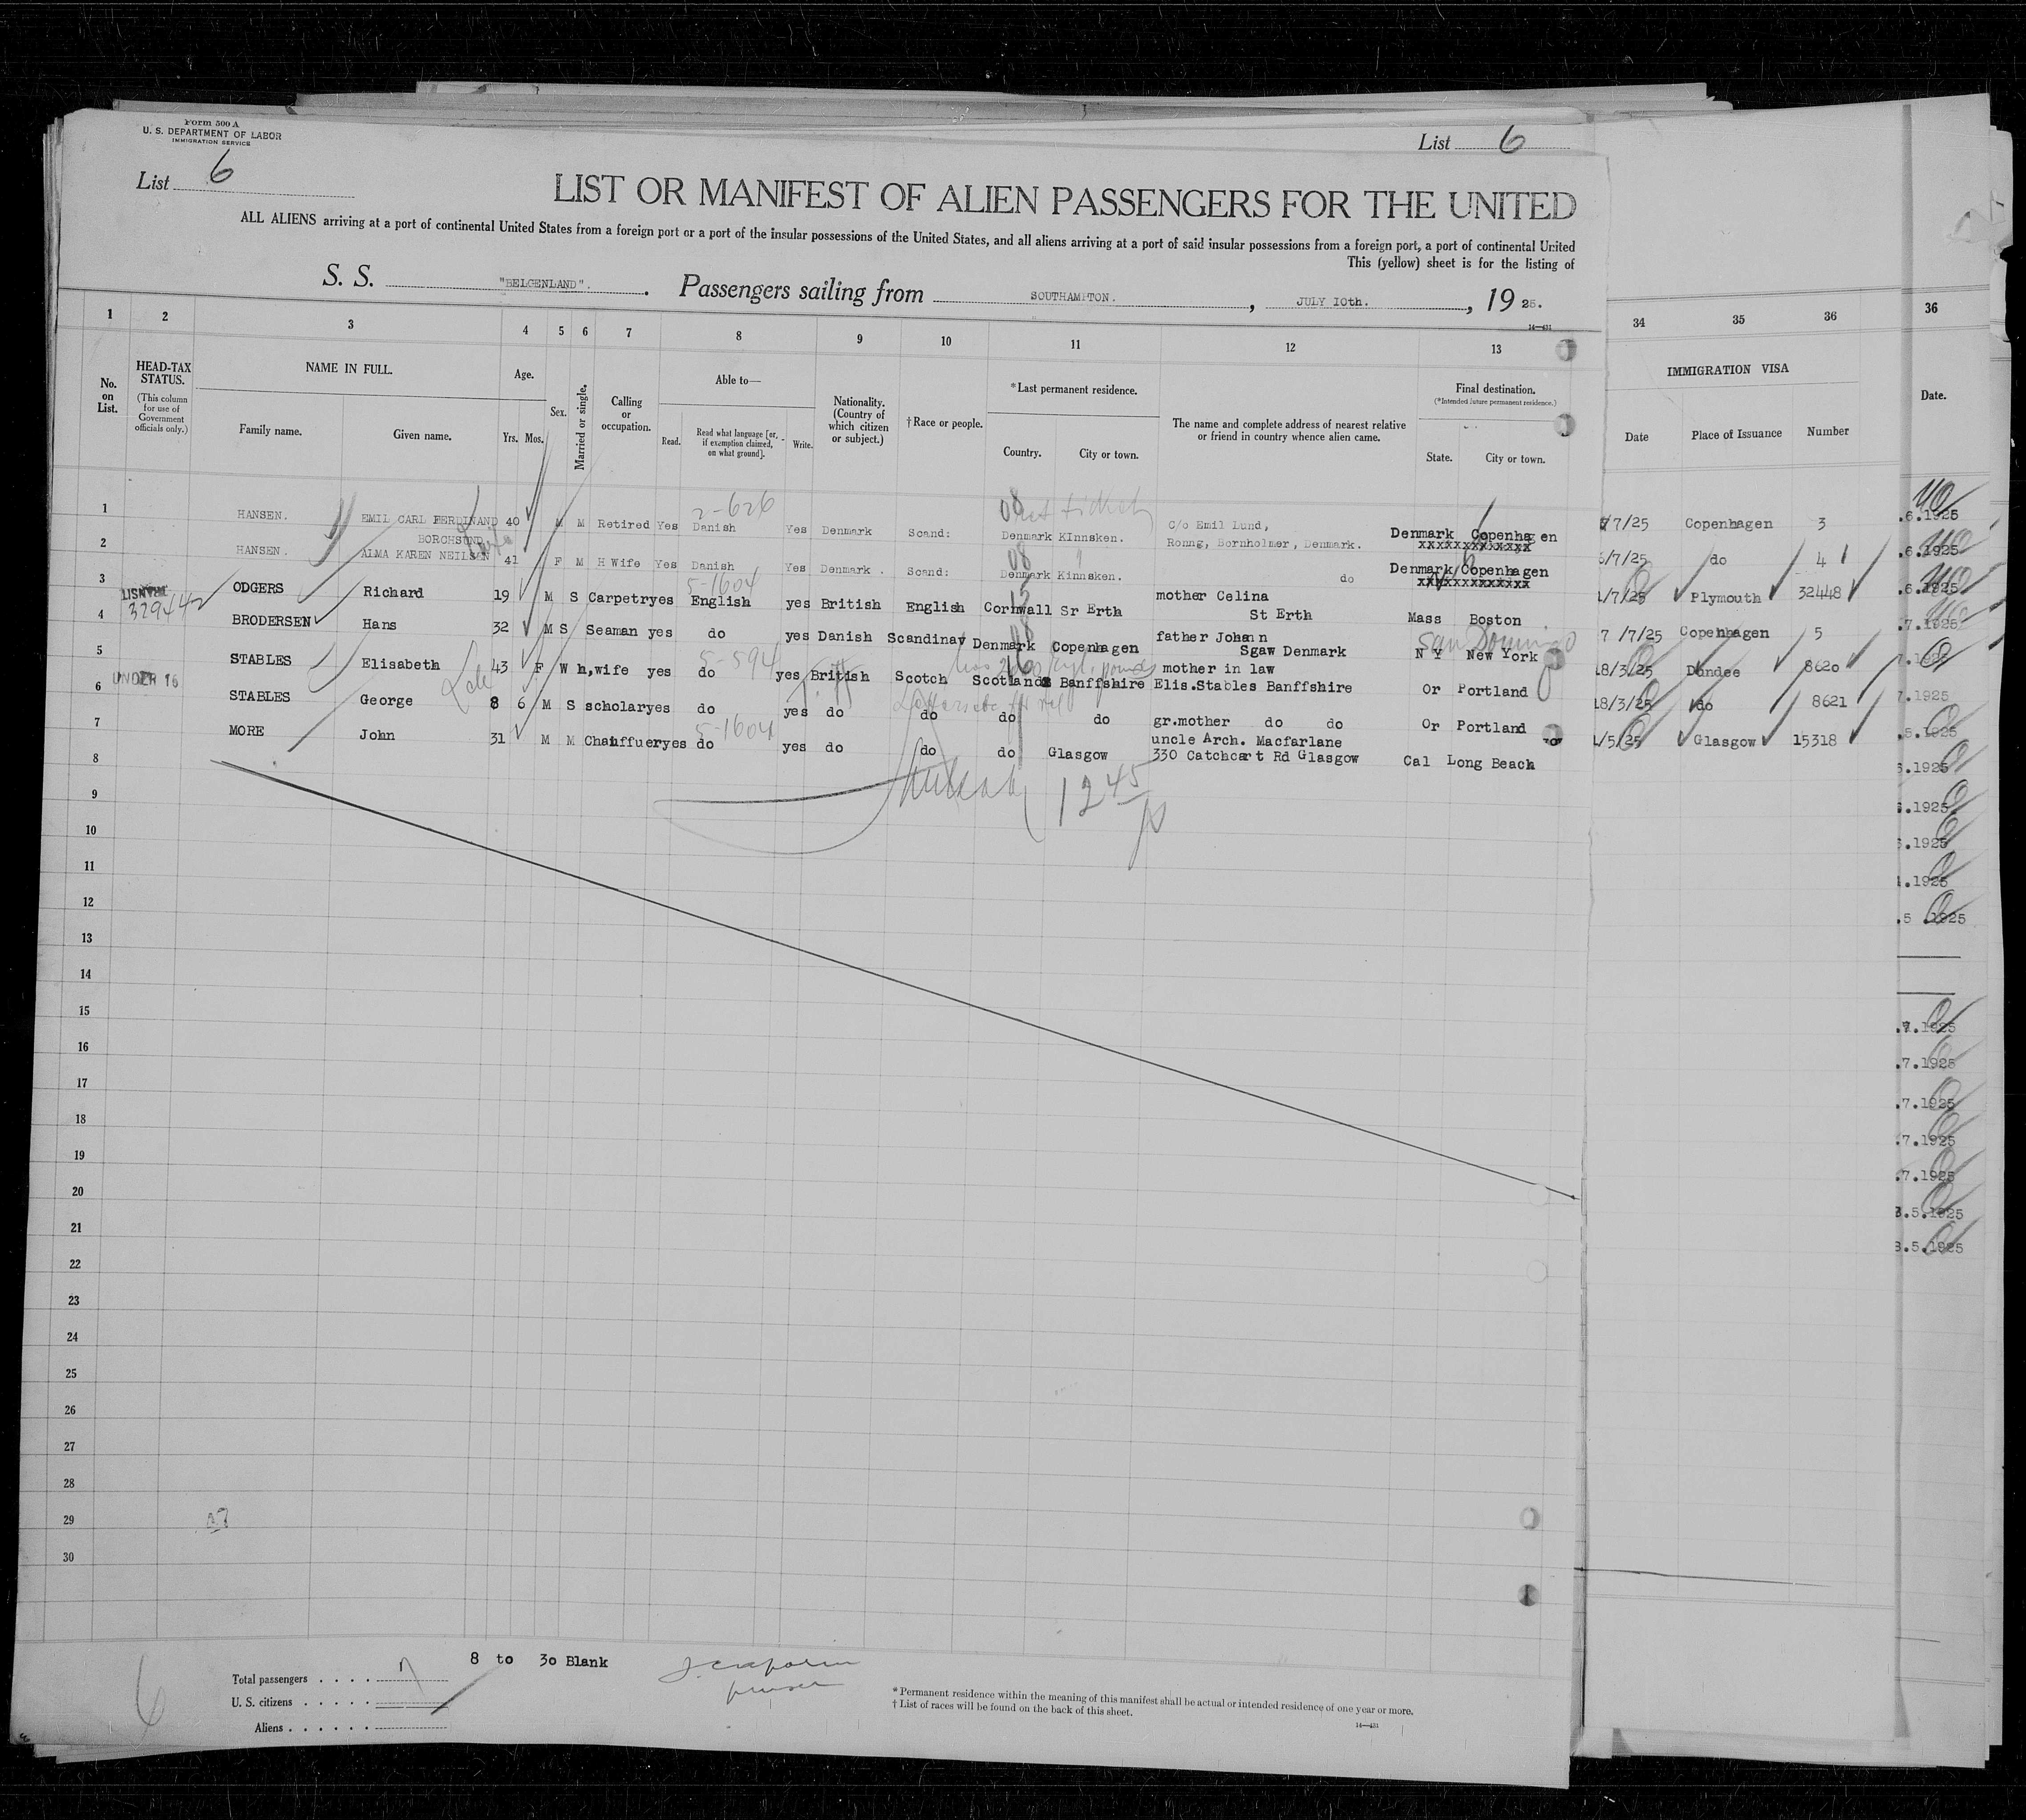 Form 500 A
U. S. DEPARTMENT OF LABOR
IMMIGRATION SERVICE
List 6
List 6
LIST OR MANIFEST OF ALIEN PASSENGERS FOR THE UNITED
ALL ALIENS arriving at a port of continental United States from a foreign port or a port of the insular possessions of the United States, and all aliens arriving at a port of said insular possessions from a foreign port, a port of continental United
This (yellow) sheet is for the listing of
S. S. "BELGENLAND". Passengers sailing from SOUTHAMPTON. , JULY 10th. , 19 25.
14—431
1 2 3 4 5 6 7 8 9 10 11 12 13 34 35 36 36
No. on List.
HEAD-TAX STATUS.
(This column for use of Government officials only.)
NAME IN FULL.
Family name. Given name.
Age.
Yrs. Mos.
Sex.
Married or single.
Calling or occupation.
Able to—
Read. Read what language [or, if exemption claimed, on what ground]. Write.
Nationality. (Country of which citizen or subject.)
†Race or people.
*Last permanent residence.
Country. City or town.
The name and complete address of nearest relative or friend in country whence alien came.
Final destination.
(*Intended future permanent residence.)
State. City or town.
IMMIGRATION VISA
Date Place of Issuance Number
Date.
2-626
1 HANSEN. EMIL CARL FERDINAND 40 M M Retired Yes Danish Yes Denmark Scand: Denmark KInnsken. c/o Emil Lund, Denmark Copenhagen /7/25 Copenhagen 3
BORCHSUND Ronng, Bornholmer, Denmark. xxxxxxxxxxxxx
2 HANSEN. ALMA KAREN NEILSEN 41 F M H Wife Yes Danish Yes Denmark . Scand: Denmark Kinnsken. do Denmark Copenhagen /7/25 do 4
xxxxxxxxxxxxx
5-1604
3 32944 ODGERS Richard 19 M S Carpetr yes English yes British English Cornwall Sr Erth mother Celina St Erth Mass Boston /7/25 Plymouth 32448
4 BRODERSEN Hans 32 M S Seaman yes do yes Danish Scandinav Denmark Copenhagen father Johan n Sgaw Denmark N Y New York 7/7/25 Copenhagen 5
San Domingo
5-594
5 STABLES Elisabeth 43 F W h,wife yes do yes British Scotch Scotland Banffshire mother in law Elis.Stables Banffshire Or Portland 18/3/25 Dundee 8620
6 UNDER 16 STABLES George 8 6 M S scholar yes do yes do do do do gr.mother do do Or Portland 18/3/25 do 8621
5-1604
7 MORE John 31 M M Chauffuer yes do yes do do do Glasgow uncle Arch. Macfarlane 330 Cathcart Rd Glasgow Cal Long Beach /5/25 Glasgow 15318
8
9
10
11
12
13
14
15
16
17
18
19
20
21
22
23
24
25
26
27
28
29
30
.6.1925
.6.1925
.6.1925
.7.1925
7.1925
7.1925
.5.1925
.1925
.1925
.1925
.1925
.5 .1925
.7.1925
.7.1925
.7.1925
.7.1925
.7.1925
.5.1925
.5.1925
6
8 to 30 Blank
Total passengers
U. S. citizens
Aliens
purser
*Permanent residence within the meaning of this manifest shall be actual or intended residence of one year or more.
†List of races will be found on the back of this sheet.
14—431